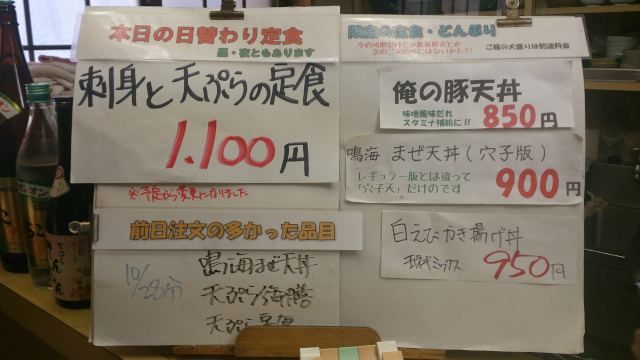 本日の日替わり定食
昼・夜ともあります
刺身と天ぷらの定食
1.100円
※予定から変更になりました
前日注文の多かった品目
10/28分
鳴海まぜ天丼
天ぷら海膳
天ぷら定食
限定の定食・どんぶり
ご飯の大盛りは別途料金
俺の豚天丼
味噌風味だれ
スタミナ補給に!!
850円
鳴海 まぜ天丼(穴子版)
レギュラー版とは違って
「穴子天」だけのです
900円
白えびかき揚げ丼
玉ねぎミックス
950円